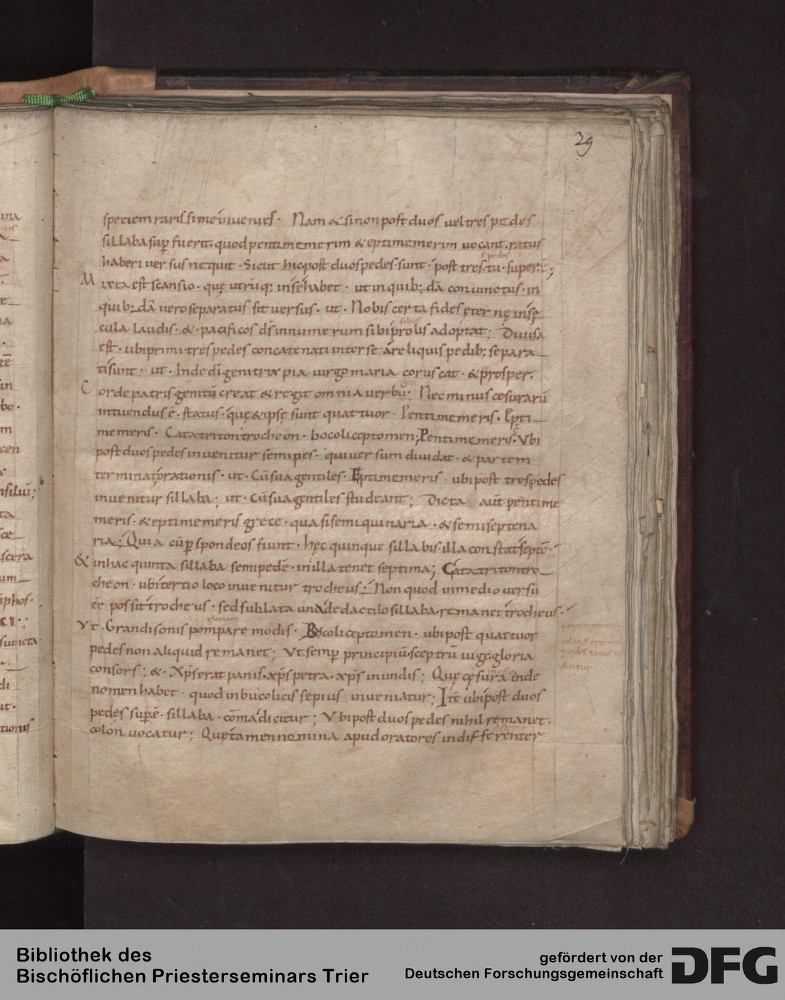 29
speciem rarissime inuenies. Nam & si non post duos uel tres pedes
sillaba sup fuerit. quod pentimemerim & eptimemerim uocant. ratus
haberi uersus nequit. Sicut hic post duos pedes sunt. post tres. tu. super ē;
Mixta est scansio. quę utrūq; in se habet. ut in quib; dā coniunctus. in
quib; dā uero separatus sit uersus. ut. Nobis certa fides ęternę in sęcula
laudis. & pacificos ds innumerum sibi prolis adoptat; Diuisa
est. ubi primi tres pedes concatenati inter se a reliquis pedib; separa
ti sunt. ut. Inde di genitrix pia uirgo maria coruscat. & prosper.
Corde patris genitū creat & regit omnia uerbū; Nec minus cesurarū
intuendus ē. status. quę & ipsę sunt quattuor. Pentimemeris. Epti
memeris. Catatritontrocheon. bocoliceptomen; Pentimemeris. Vbi
post duos pedes inuenitur semipes. qui uersum diuidat. & partem
terminat orationis. ut. Cū sua gentiles. Eptimemeris. ubi post tres pedes
inuenitur sillaba; ut. Cū sua gentiles studeant; Dicta aūt pentime
meris. & eptimemeris grece. quasi semiquinaria. & semiseptena
ria; Quia cūp spondeos fiunt. hęc quinque sillabis illa constat septē.
& in hac quinta sillaba semipedē. in illa tenet septima; Catatritontro
cheon. ubi tertio loco inuenitur trocheus; Non quod in medio uersū
eē possit trocheus. sed sublata una de dactilo sillaba. remanet trocheus.
Vt. Grandisonis pompare modis. Bocoliceptomen. ubi post quattuor
pedes non aliquid remanet; Vt semp principiū sceptrū iuge gloria
consors; & Xps erat panis. xps petra. xps in undis; Quę cęsura inde
nomen habet. quod in bucolicis sepius inueniatur; Itē ubi post duos
pedes supē. sillaba. comma dicitur; Vbi post duos pedes nihil remanet.
colon uocatur; Quę tamen nomina apud oratores indifferenter
Bibliothek des
Bischöflichen Priesterseminars Trier
gefördert von der
Deutschen Forschungsgemeinschaft
DFG